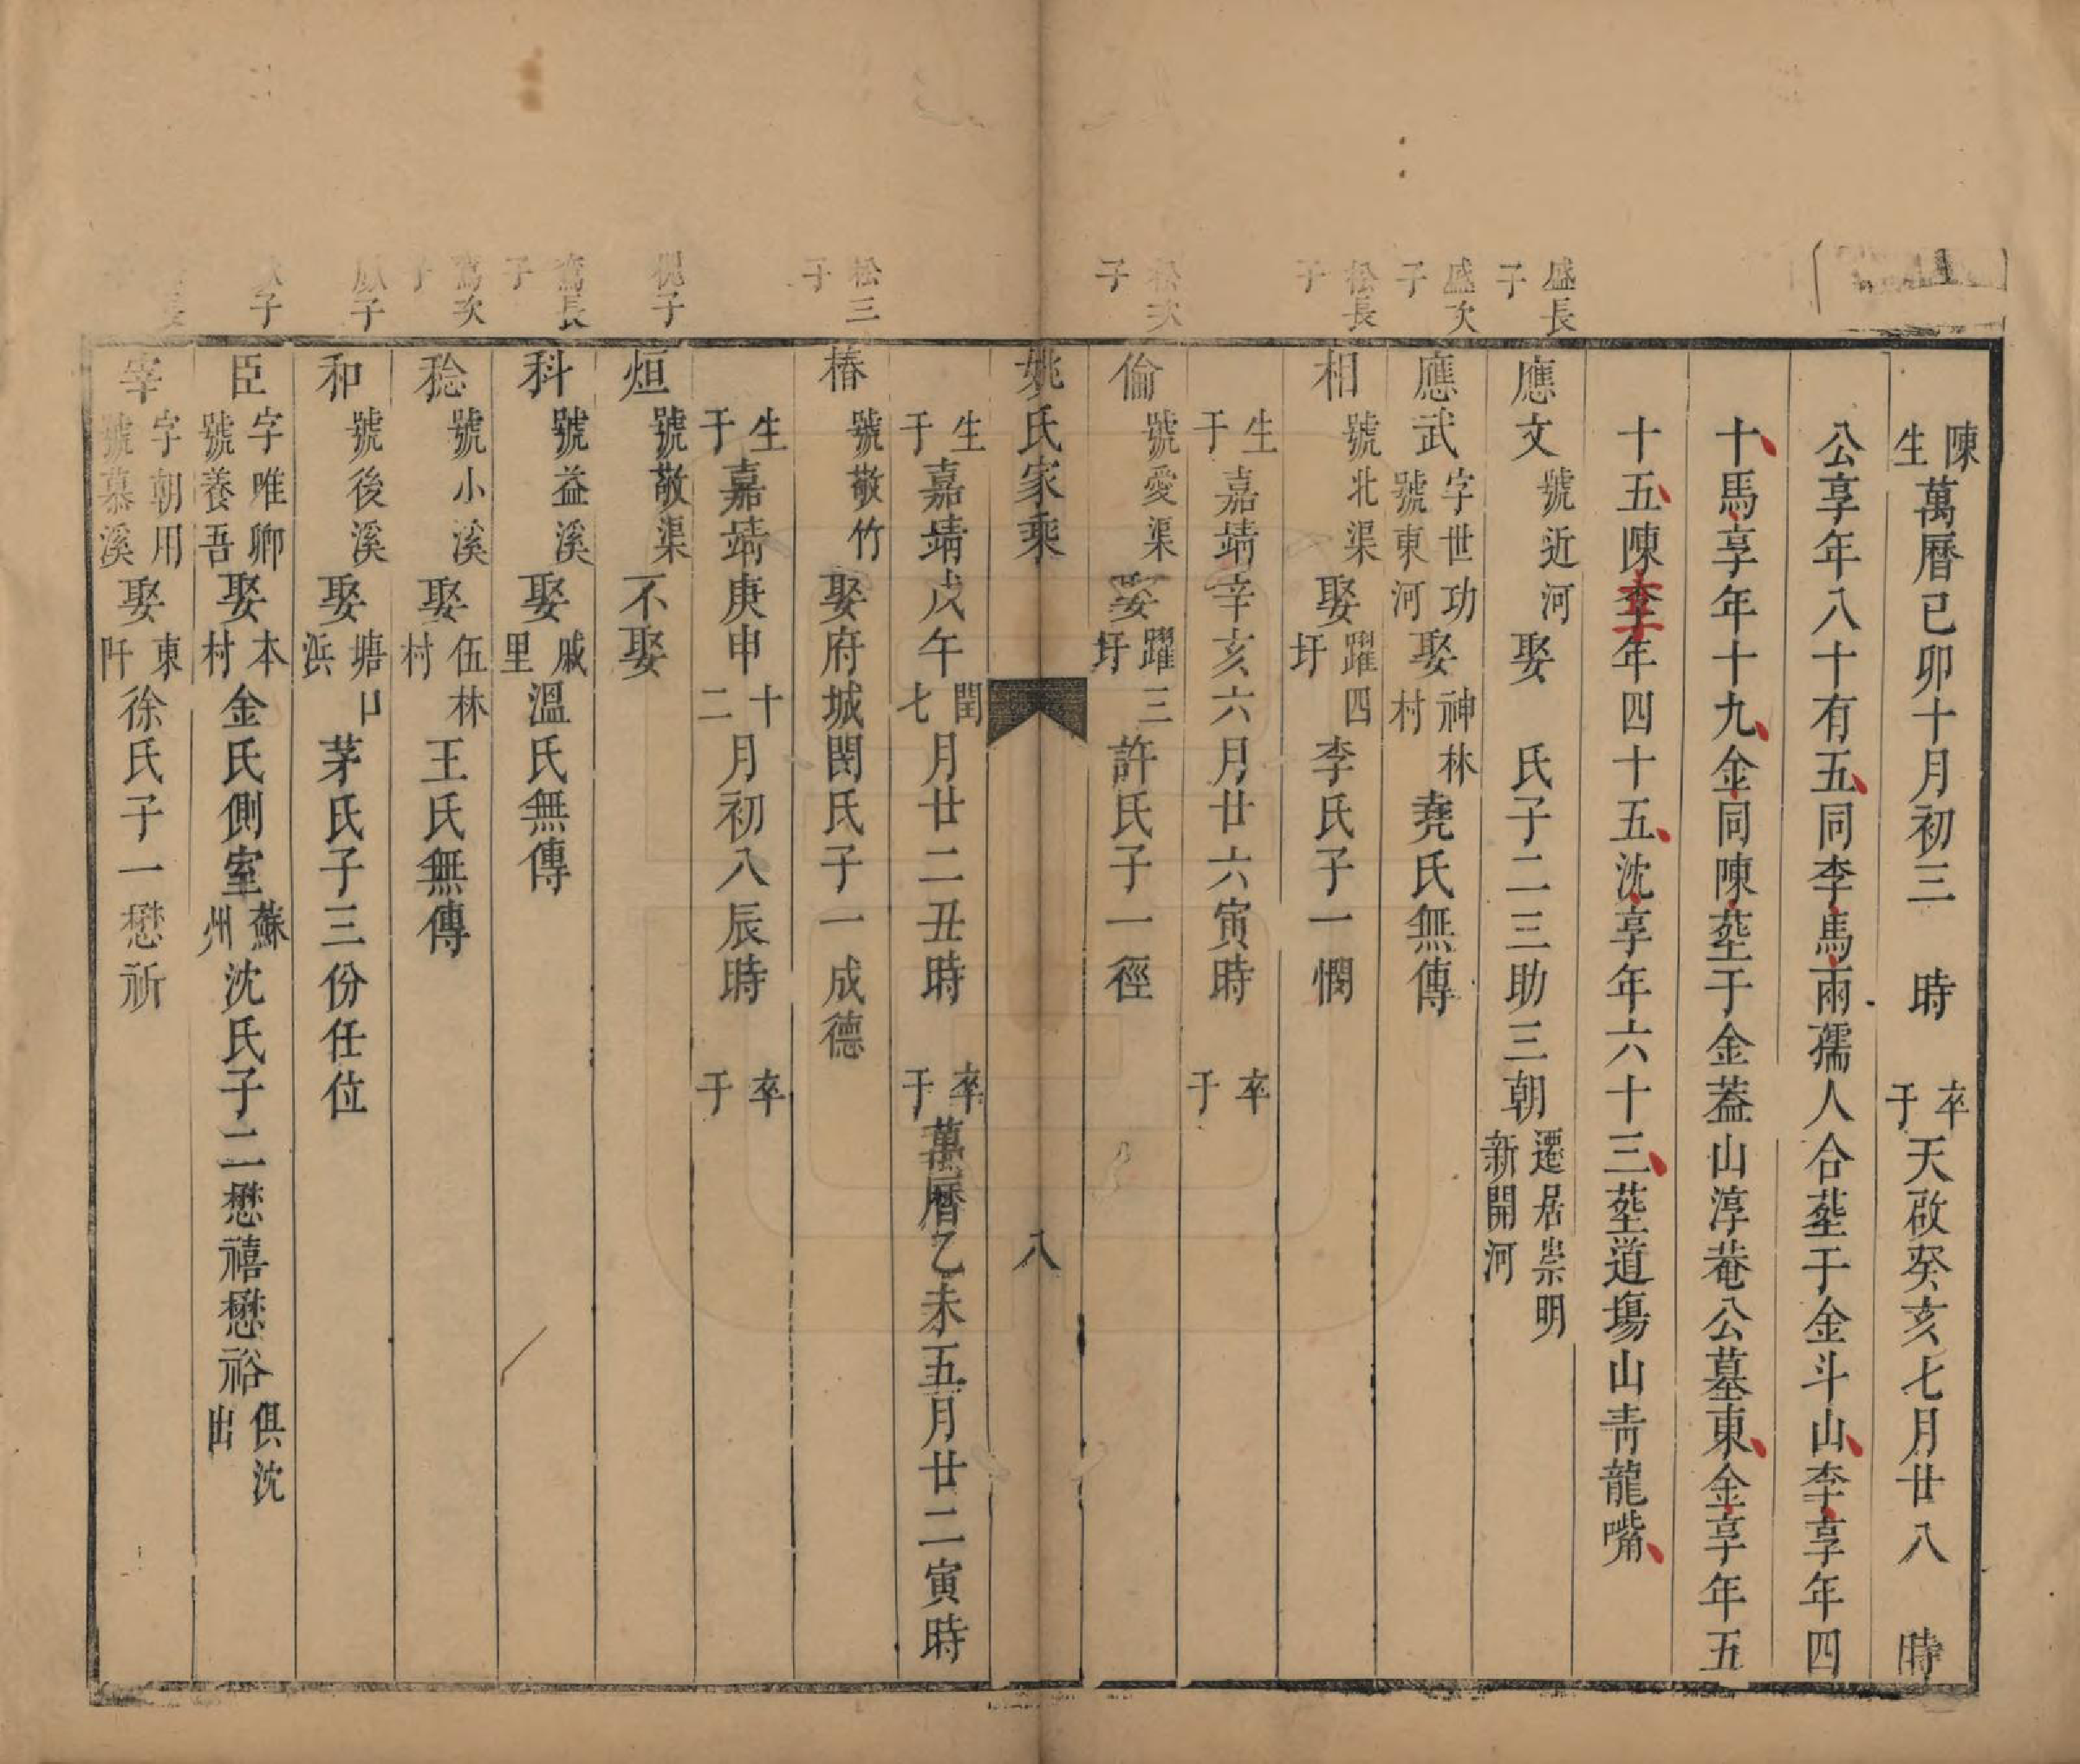 陳生萬曆己卯十月初三　時　卒于天啟癸亥七月廿八　時
公享年八十有五同李馬兩孺人合塟于金斗山李享年四
十馬享年十九金同陳塟于金蓋山淳菴公墓東金享年五
十五陳李年四十五沈享年六十三塟道塲山青龍嘴
盛長子
應文號近河娶　氏子二三助三朝遷居崇明新開河
盛次子
應武字世功號東河娶神林村堯氏無傳
松長子
相號北渠娶躍四圩李氏子一憪
生于嘉靖辛亥六月廿六寅時　卒于
松次子
倫號愛渠娶躍三圩許氏子一徑
姚氏家乘　八
生于嘉靖戊午閏七月廿二丑時　卒于萬曆乙未五月廿二寅時
松三子
椿號敬竹娶府城閔氏子一成德
生于嘉靖庚申十二月初八辰時　卒于
槐子
烜號敬渠不娶
鸞長子
科號益溪娶戚里溫氏無傳
鸞次子
稔號小溪娶伍林村王氏無傳
子
和號後溪娶塘口浜茅氏子三份任位
子
臣字唯卿號養吾娶本村金氏側室蘇州沈氏子二懋禧懋裕俱沈出
宰字朝用號慕溪娶東阡徐氏子一懋祈